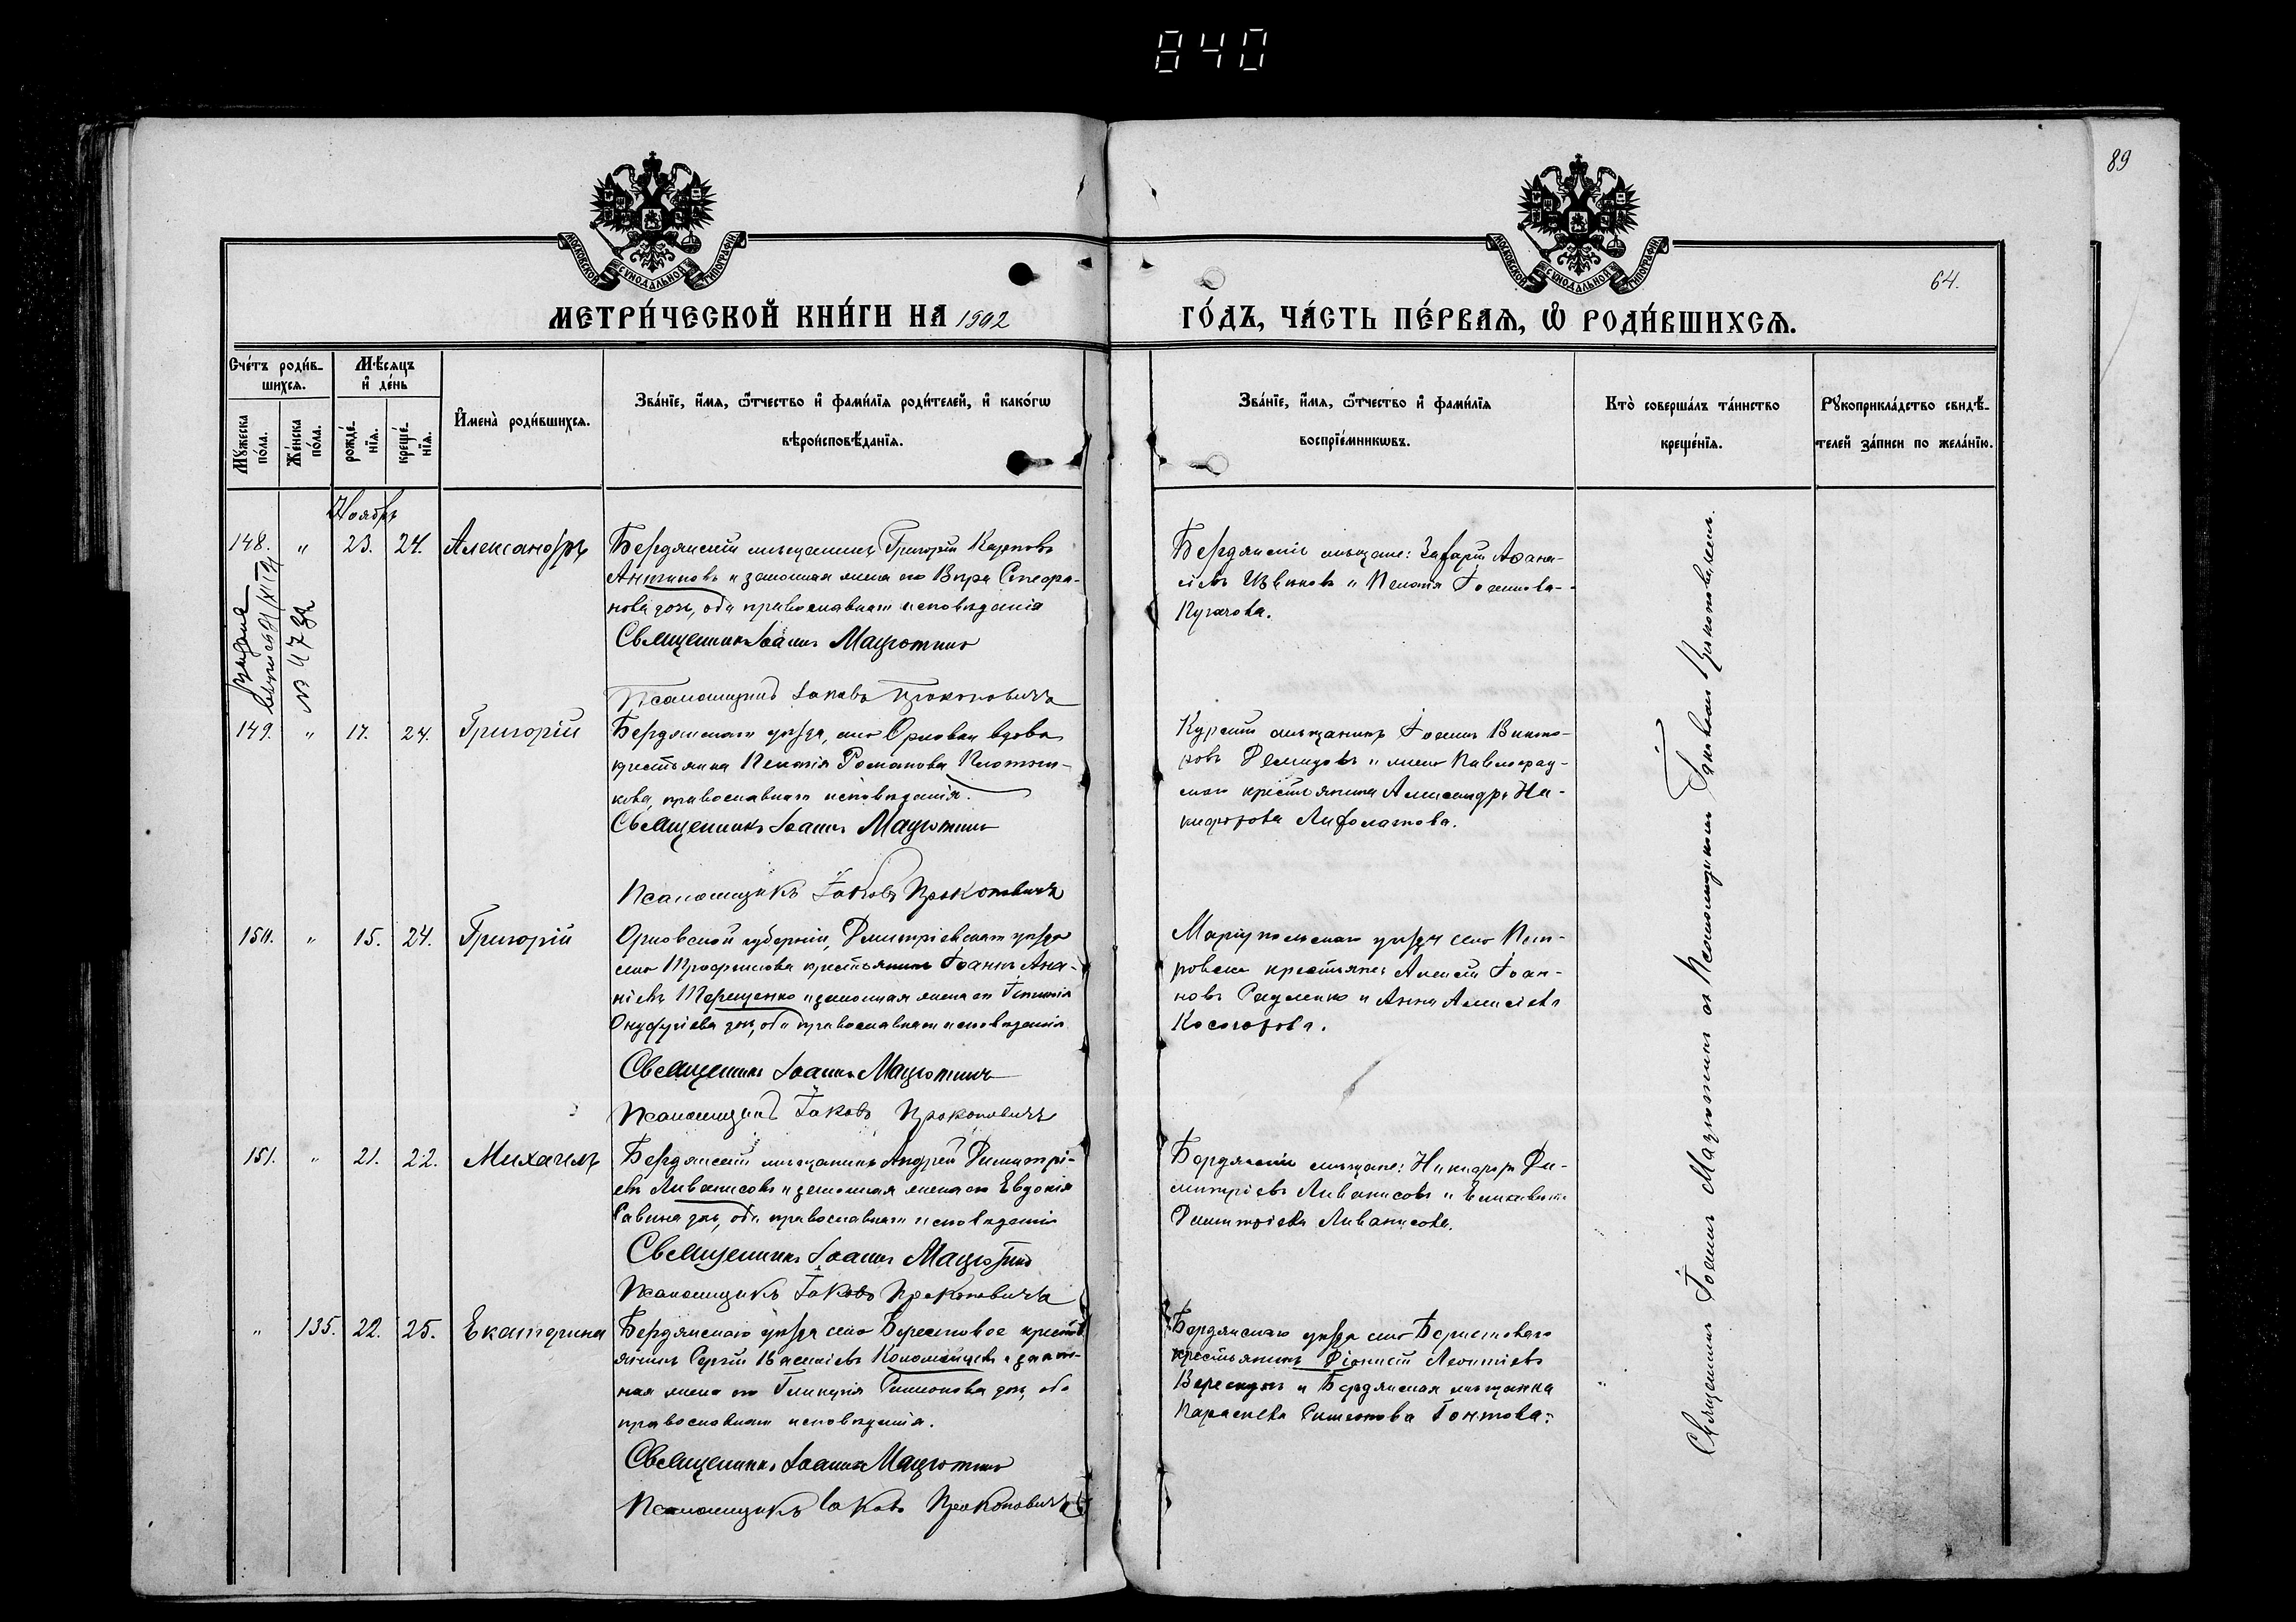 840
89
64.
МОСКОВСКОЙ СѴНОДАЛЬНОЙ ТИПОГРАФІИ
МОСКОВСКОЙ СѴНОДАЛЬНОЙ ТИПОГРАФІИ
МЕТРИ́ЧЕСКОЙ КНИ́ГИ НА 1902 ГО́ДЪ, ЧА́СТЬ ПЕ́РВАѦ, Ѡ҆ РОДИ́ВШИХСѦ.
Сче́тъ роди́в-
шихсѧ.
Мꙋ́жеска по́ла.
Же́нска по́ла.
Мѣ́сѧцъ и҆ де́нь
рожде́-
нїѧ.
креще́-
нїѧ.
И҆мена̀ роди́вшихсѧ.
Зва́нїе, и҆́мѧ, ѻ҆́тчество и҆ фами́лїѧ роди́телей, и҆ како́гѡ
вѣроисповѣ́данїѧ.
Зва́нїе, и҆́мѧ, ѻ҆́тчество и҆ фами́лїѧ
воспрїе́мникѡвъ.
Кто̀ соверша́лъ та́инство
креще́нїѧ.
Рꙋкоприкла́дство свидѣ́-
телей за́писи по жела́нїю.
Ноябрь
148. " 23. 24. Александръ
Бердянскій мѣщанинъ Григорій Карповъ
Антиповъ и законная жена его Вѣра Стефа-
нова дочь, оба православнаго исповѣданія
Священникъ Іоаннъ Мацютинъ
Псаломщикъ Іаковъ Прокоповичъ
Бердянскіе мѣщане: Захарій Аѳана-
сіевъ и Пелагія Іоаннова
Пугачова.
выпись
№ 47
149. " 17. 24. Григорій
Бердянскаго уѣзда, села Орловки вдова
крестьянка Пелагія Романова Плотни-
кова, православнаго исповѣданія.
Священникъ Іоаннъ Мацютинъ
Псаломщикъ Іаковъ Прокоповичъ
Курскій мѣщанинъ Іоаннъ Викто-
ровъ Демидовъ и жена Павлоград-
скаго крестьянина Александра Ни-
кифорова
150. " 15. 24. Григорій
Орловской губерніи, Дмитріевскаго уѣзда
села Трофимовка крестьянинъ Іоаннъ Ана-
ніевъ Терещенко и законная жена его
Онуфріева дочь, оба православнаго исповѣданія
Священникъ Іоаннъ Мацютинъ
Псаломщикъ Іаковъ Прокоповичъ
Маріупольскаго уѣзда села Пет-
ровки крестьяне: Алексій Іоан-
новъ и Анна Алексіева
Косогорова.
151. " 21. 22. Михаилъ
Бердянскій мѣщанинъ Андрей Димитрі-
евъ Ливанисовъ и законная жена его Евдокія
Савина дочь, оба православнаго исповѣданія
Священникъ Іоаннъ Мацютинъ
Псаломщикъ Іаковъ Прокоповичъ
Бердянскіе мѣщане: Никифоръ Ди-
митріевъ Ливанисовъ и Елисавета
Димитріева Ливанисова.
" 135. 22. 25. Екатерина
Бердянскаго уѣзда села Берестовое кресть-
янинъ Сергій Василіевъ Коломейцевъ и закон-
ная жена его Гликерія Симеонова дочь, оба
православнаго исповѣданія.
Священникъ Іоаннъ Мацютинъ
Псаломщикъ Іаковъ Прокоповичъ
Бердянскаго уѣзда села Берестоваго
крестьянинъ Діонисій Леонтіевъ
и Бердянская мѣщанка
Параскева Симеонова Гонтова.
Священникъ Іоаннъ Мацютинъ съ Псаломщикомъ Іаковомъ Прокоповичемъ.